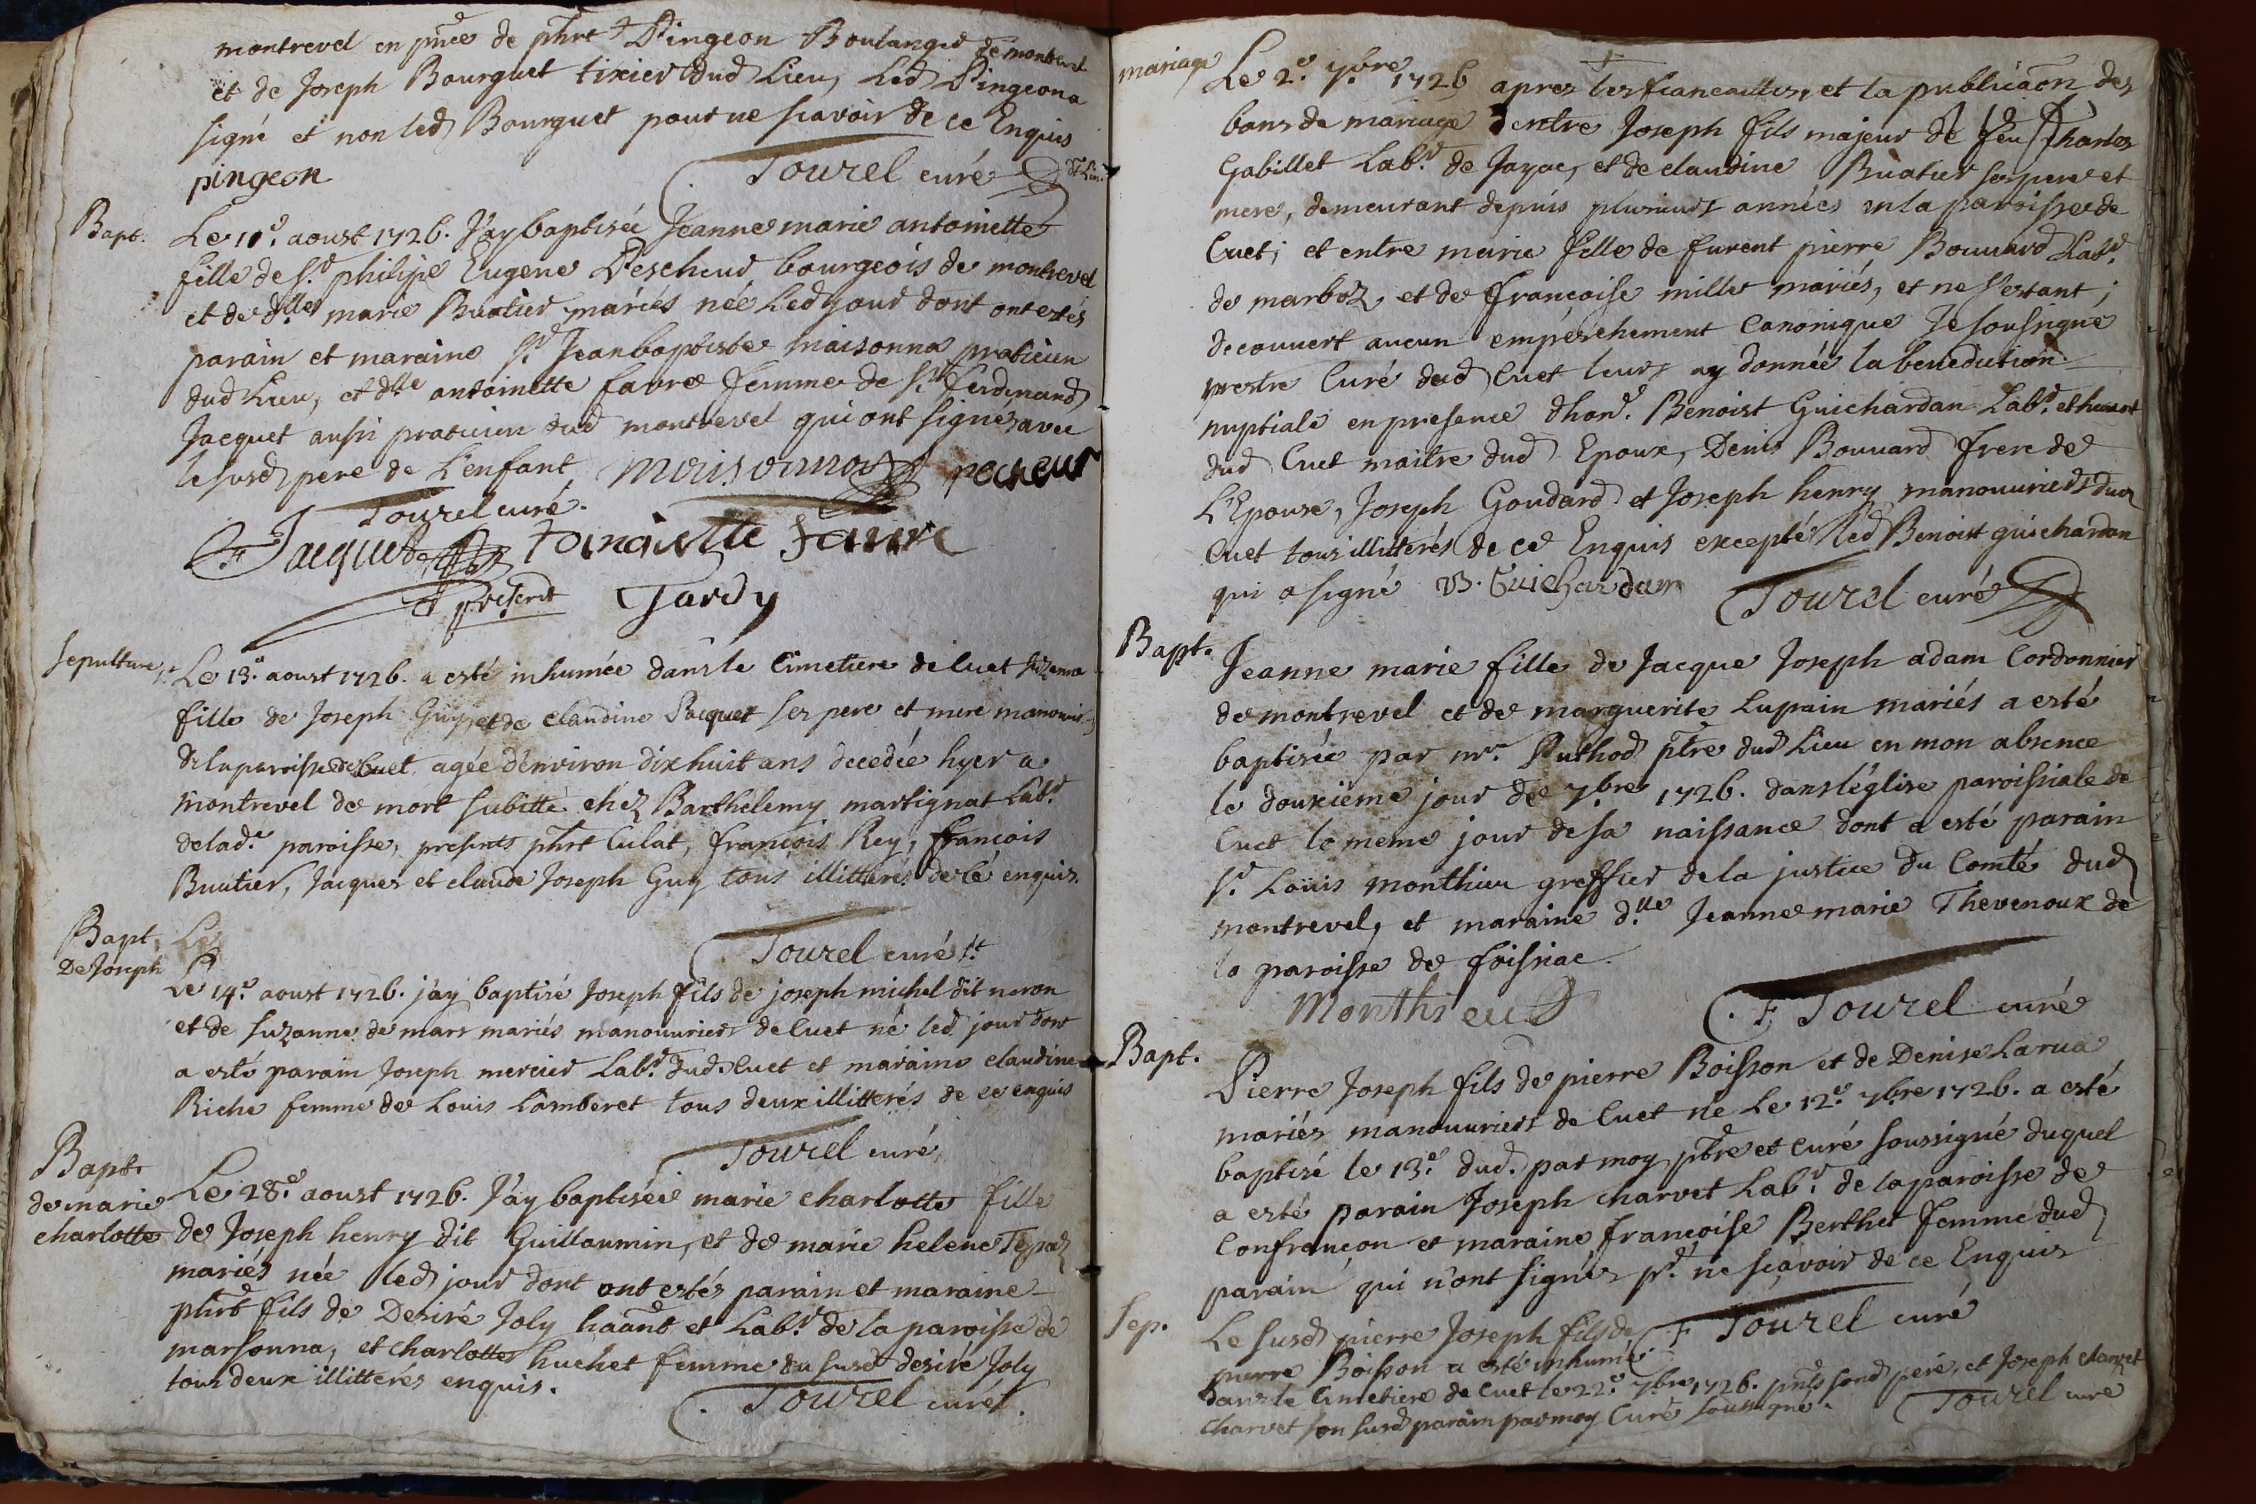 montrevel en pnce de phrt Pingeon Boulanger de montrevel
et de Joseph Bourguet tixier dud Lieu, Led Pingeon a
signé et non led Bourguet pour ne scavoir de ce Enquis
pingeon Tourel curé
Bapt. Le 10e. aoust 1726. J'ay baptisée Jeanne marie antoinette
fille de Sr. philipe Eugene Pescheur bourgeois de montrevel
et de dlle marie Buatier mariés née Led jour dont ont estés
parain et maraine Sr. Jean baptiste Maisonna praticien
dud Lieu, et dlle antoinette favre femme de Sr. ferdinand
Jacquet aussi praticien dud montrevel qui ont signez avec
le susd pere de L'enfant Maisonna pecheur
Tourel curé.
F Jacquet toinaiette favre
present Tardy
sepulture Le 13e. aoust 1726. a esté inhumée dans le Cimetiere de Cuet Suzanna
fille de Joseph Guy et de claudine Pacquet ses pere et mere manouvriers
de la paroisse de Cuet agée d'environ dixhuit ans decedée hyer a
montrevel de mort subitte chéz Barthelemy martignat Labr.
de lade. paroisse, presents phrt Culat, françois Rey, françois
Buatier, Jacques et claude Joseph Guy tous illitterés de ce enquis.
Bapt. Le
Tourel curé
De Joseph Le 14e. aoust 1726. j'ay baptizé Joseph fils de joseph michel dit neron
et de suzanne de mars mariés manouvriers de Cuet né led jour dont
a esté parain Joseph mercier Labr. dud. Cuet et maraine claudine
Riche femme de Louis Lamberet tous deux illitterés de ce enquis
Tourel curé
Bapt.
de marie Le 28e. aoust 1726. J'ay baptisée marie charlotte fille
charlotte de Joseph henry dit Guillaumin, et de marie helene
mariés née led jour dont ont estéz parain et maraine
phrt fils de Desiré Joly haânt et Labr. de la paroisse de
marsonna, et charlotte huchet femme du susd desiré Joly
tous deux illitterés enquis.
Tourel curé.
mariage Le 2e. 7bre 1726 apres les fiancailles, et la publicaôn des
bans de mariage d'entre Joseph fils majeur de feu Charles
Gabillet Labr. de Jayac, et de claudine Buatier ses pere et
mere, demeurant depuis plusieurs années en la paroisse de
Cuet; et entre marie fille de furent pierre Bouvard Labr.
de marboz, et de françoise millet mariés, et ne s'estant
decouvert aucun empeschement Canonique Je soussigné
prestre Curé dud Cuet leurs ay donnée la benediction
nuptiale en presence d'hone. Benoist Guichardan Labr. et haant
dud Cuet maitre dud Epoux, Denis Bouvard frere de
L'Epouse, Joseph Goudard et Joseph henry manouvriers dud
Cuet tous illiterés de ce Enquis excepté led Benoist guichardan
qui a signé B. Guichardam Tourel curé
Bapt. Jeanne marie fille de Jacque Joseph adam Cordonnier
de montrevel et de marguerite Lupain mariés a esté
baptisée par mre. Puthod ptre dud Lieu en mon absence
le douxieme jour de 7bre 1726. dans l'église paroissiale de
Cuet le meme jour de sa naissance dont a esté parain
Sr. Loüis monthieu greffier de la justice du Comté dud
montrevel, et maraine dlle Jeanne marie Thevenoux de
la paroisse de foissiac.
Monthieu F Tourel curé
Bapt. Pierre Joseph fils de pierre Boisson et de Denise Larua
mariés manouvriers de Cuet né Le 12e. 7bre 1726. a esté
baptisé le 13e. dud. par moy ptre et Curé soussigné duquel
a esté parain Joseph charvet Labr. de la paroisse de
Confrançon et maraine françoise Berthet femme dud
parain qui n'ont signés pr. ne sçavoir de ce Enquis
F Tourel curé
Sep. Le susd pierre Joseph fils de
pierre Boisson a esté inhumé
dans le Cimetiere de Cuet le 22e. 7bre 1726. pnts sond pere, et Joseph
charvet son susd parain par moy Curé soussigné. Tourel curé